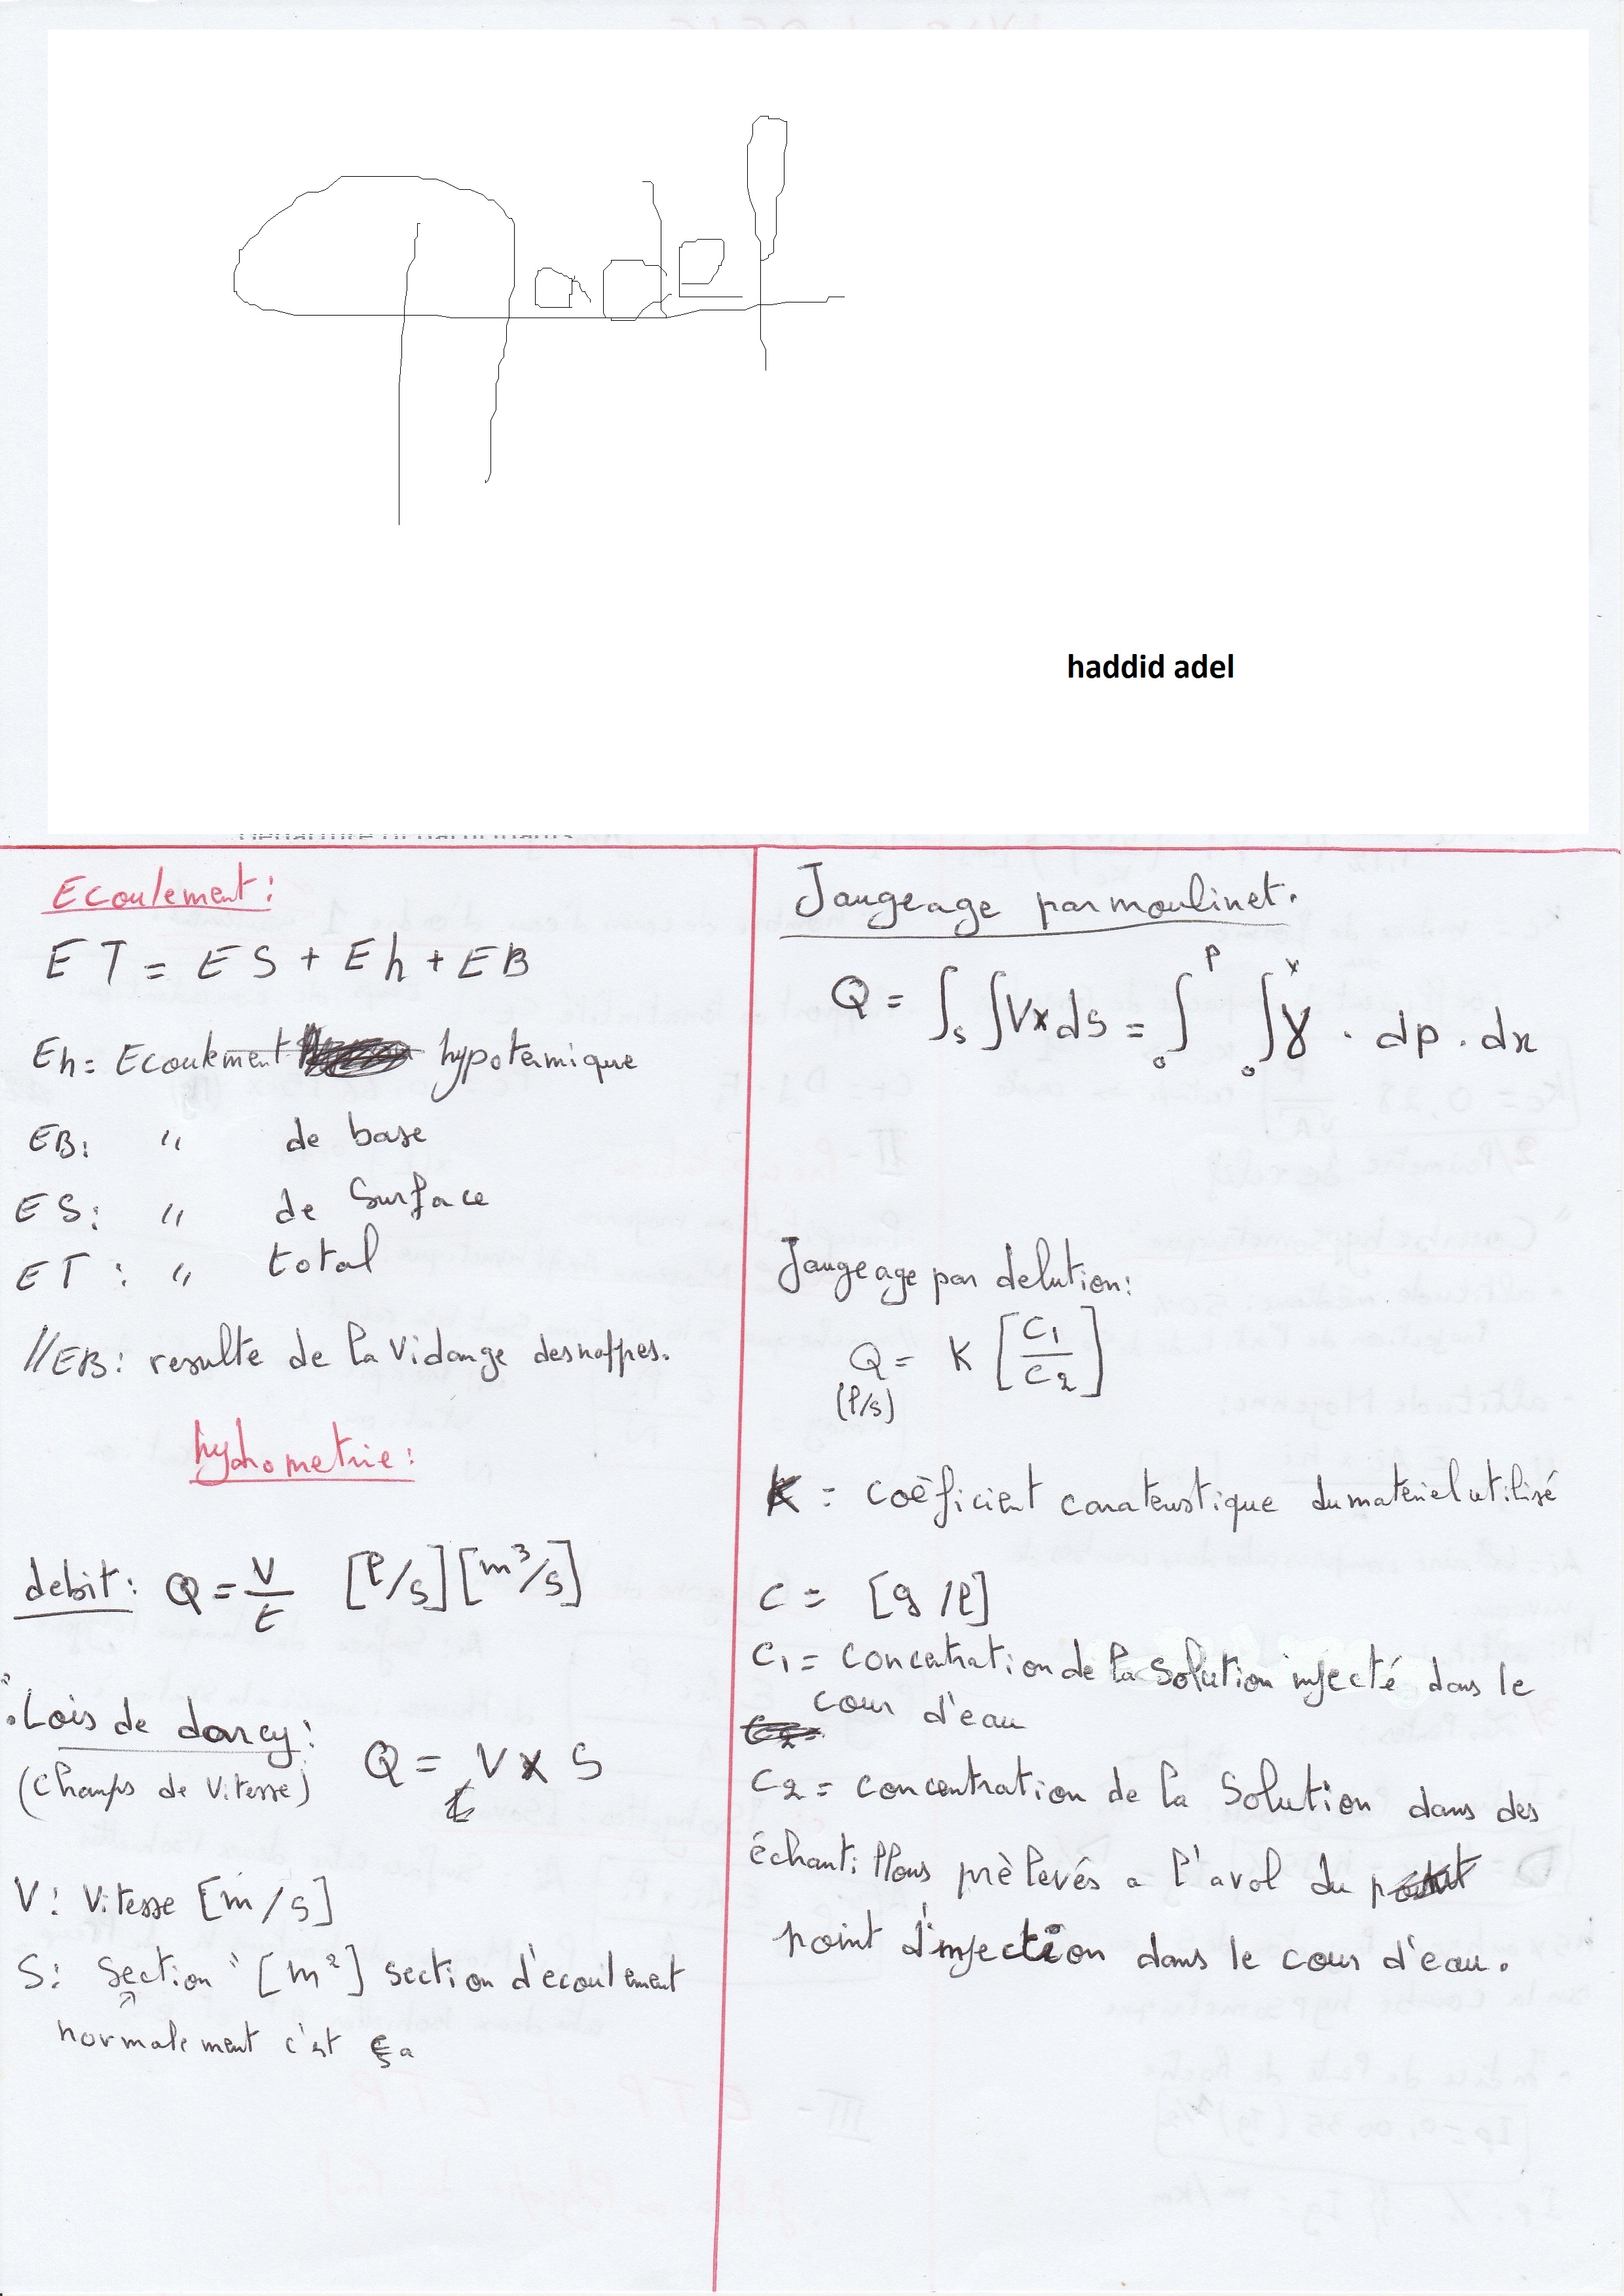 haddid adel
Ecoulement :
ET = ES + Eh + EB
Eh = Ecoulement hypotermique
EB : " de base
ES : " de Surface
ET : " total
//EB : resulte de la Vidange des nappes.
hydrometrie :
debit : Q = V/t [l/s] [m³/s]
Lois de darcy :
(Champs de Vitesse) Q = V x S
V : Vitesse [m/s]
S : Section [m²] section d'ecoulement
normalement c'est ça
Jaugeage par moulinet.
Q = ∫s ∫Vx ds = ∫₀ᴾ ∫₀ˣ γ . dp . dx
Jaugeage par delution :
Q = K [C1/C2]
(l/s)
K = coèficient carateristique du matèriel utilisé
C = [g/l]
C1 = concentration de la solution injecté dans le
cour d'eau
C2 = concentration de la Solution dans des
échantillons prèlevés a l'aval du
point d'injection dans le cour d'eau.